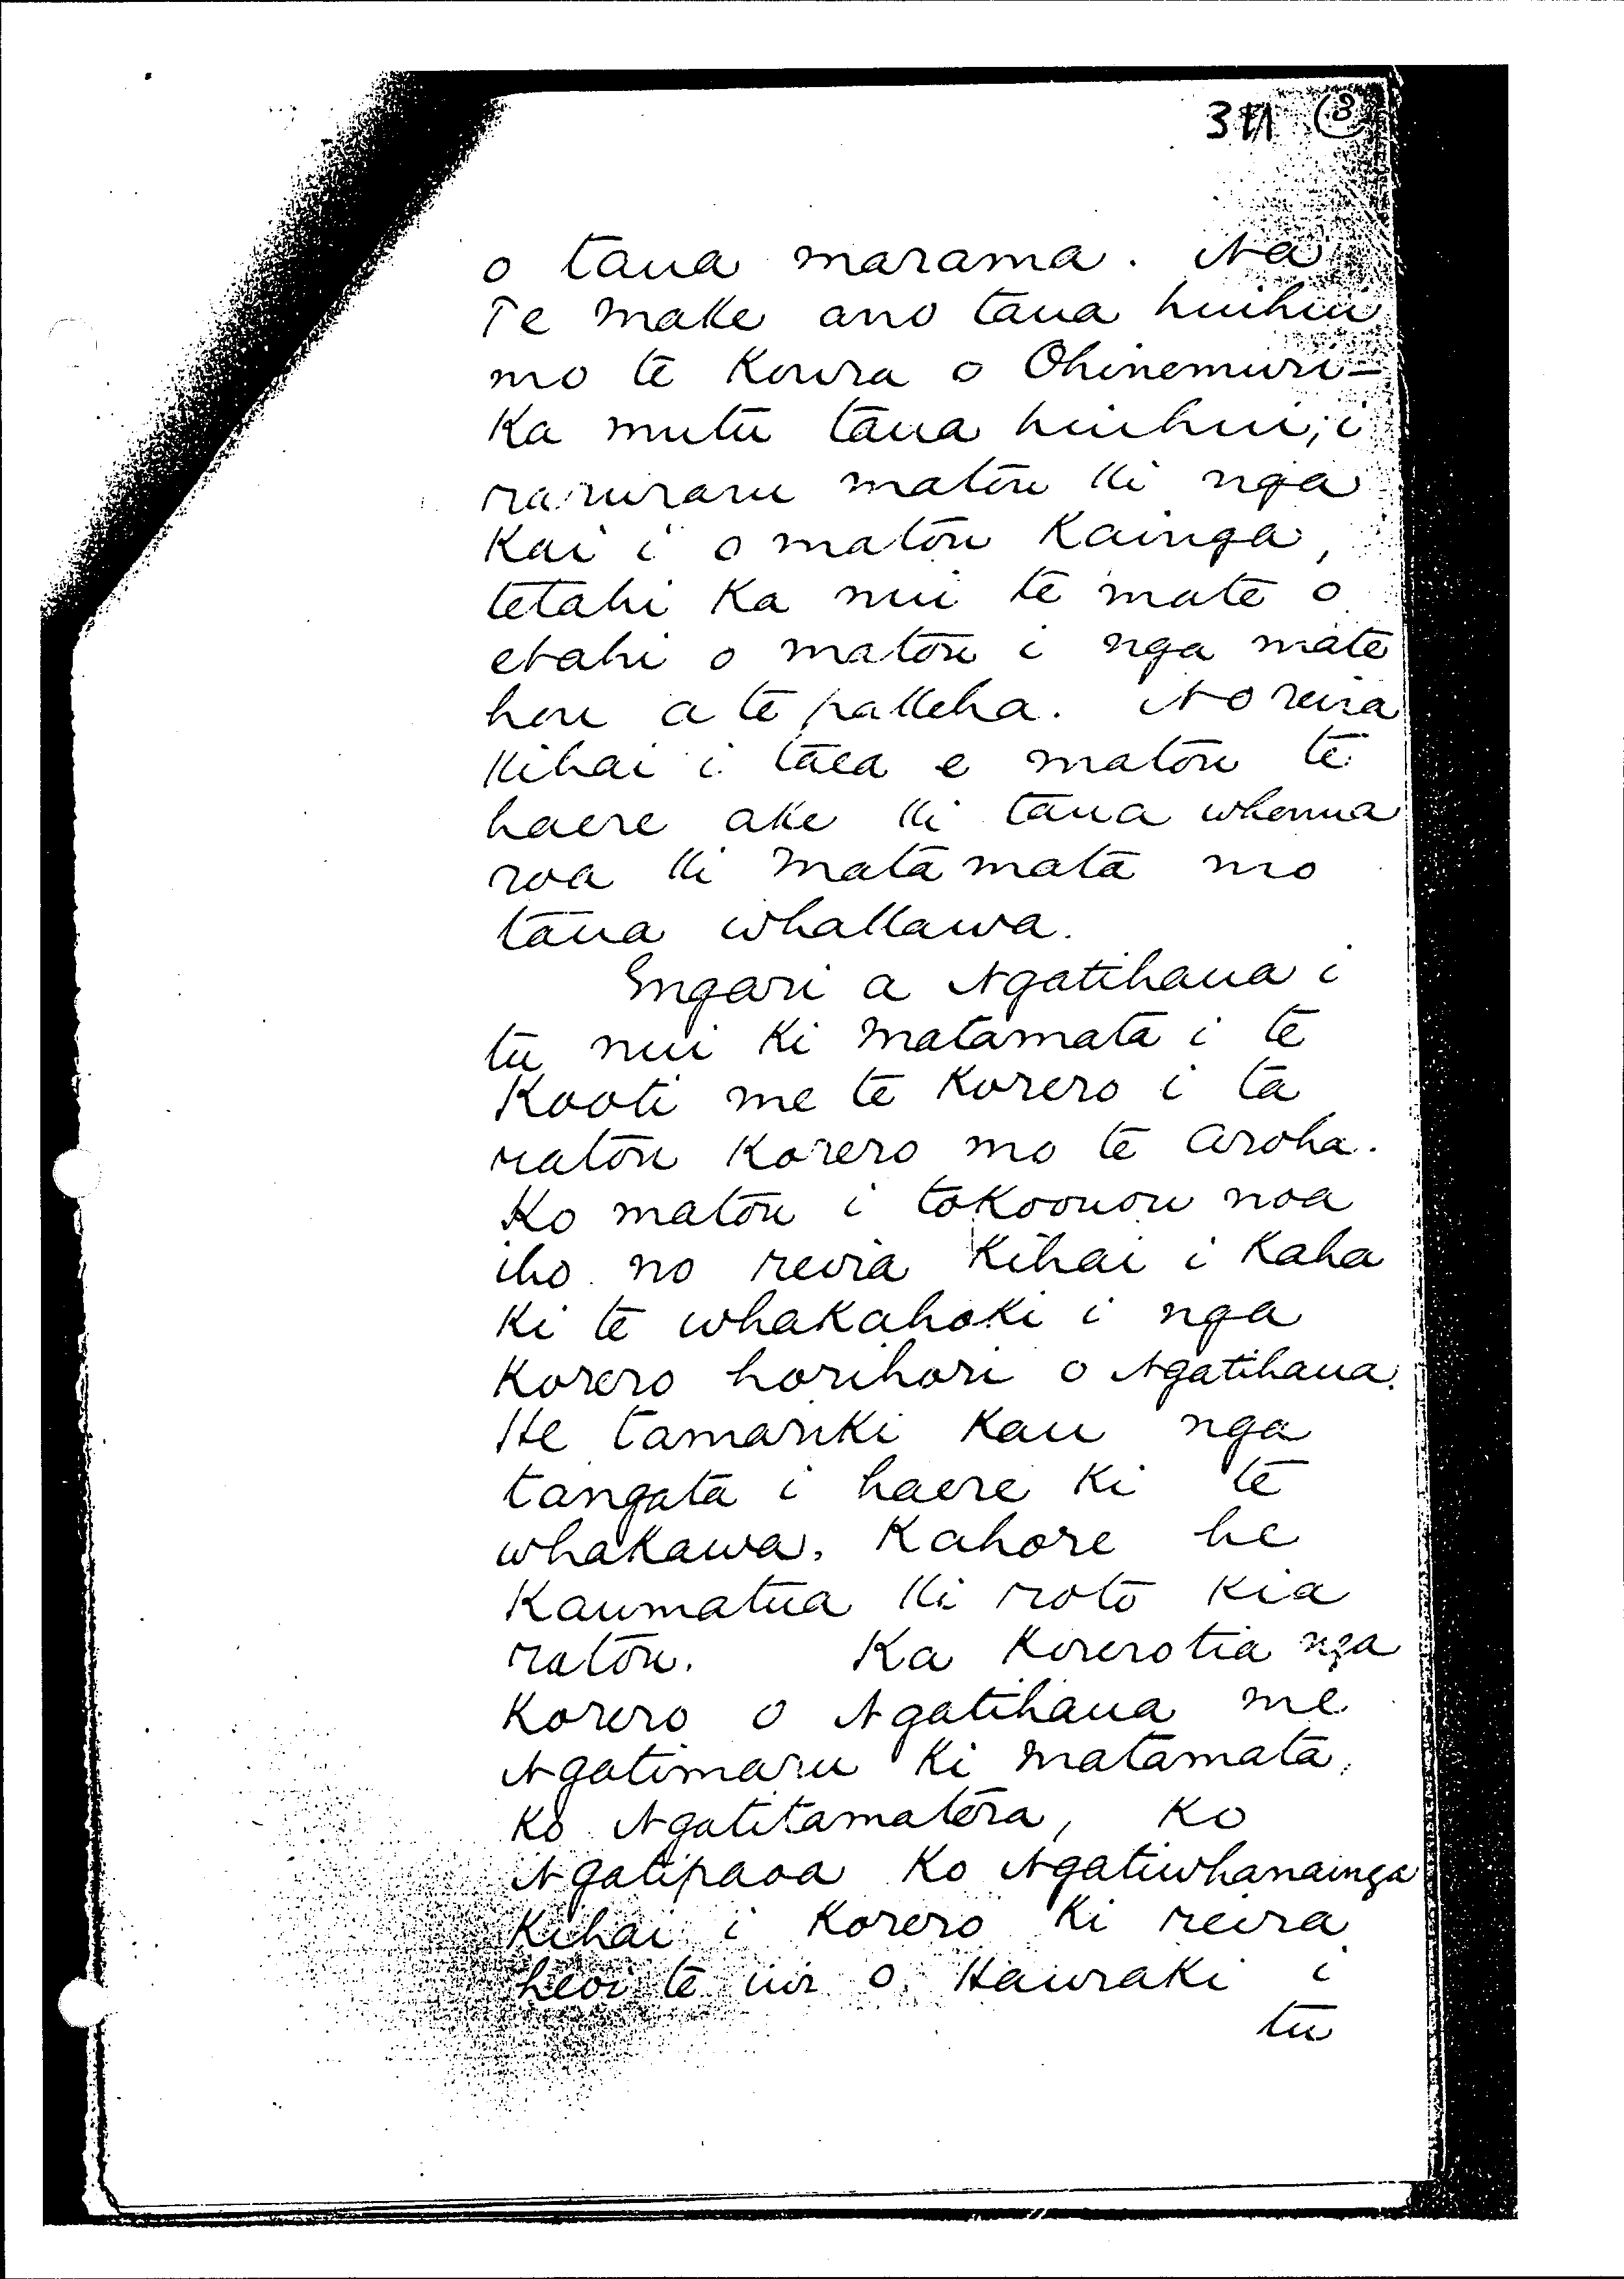 311 (3)
o taua marama. Na
Te Make ano taua huihui
mo te Koura o Ohinemuri-
Ka mutu taua huihui; i
raruraru matou ki nga
Kai i o matou Kainga,
tetahi Ka nui te mate o
etahi o matou i nga mate
hou a te pakeha. No reira
Kihai i taea e matou te
haere ake ki taua whenua
roa ki Matamata mo
taua whakawa.
Engari a Ngatihaua i
tu nui Ki Matamata i te
Kooti me te Korero i ta
ratou Korero mo te Aroha.
Ko matou i tokoouou noa
iho no reira Kihai i Kaha
Ki te whakahoki i nga
Korero horihori o Ngatihaua.
He tamariki Kau nga
tangata i haere Ki te
whakawa. Kahore he
Kaumatua Ki roto Kia
ratou. Ka Korerotia nga
Korero o Ngatihaua me
Ngatimaru Ki Matamata,
Ko Ngatitamatera, Ko
Ngatipaoa Ko Ngatiwhanainga
Kihai i Korero Ki reira
heoi te iwi o Hauraki i
tu